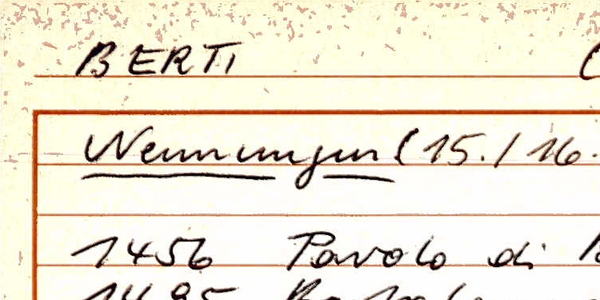 BERTI (
Nennungen (15./16.
1456 Pavolo di
1485